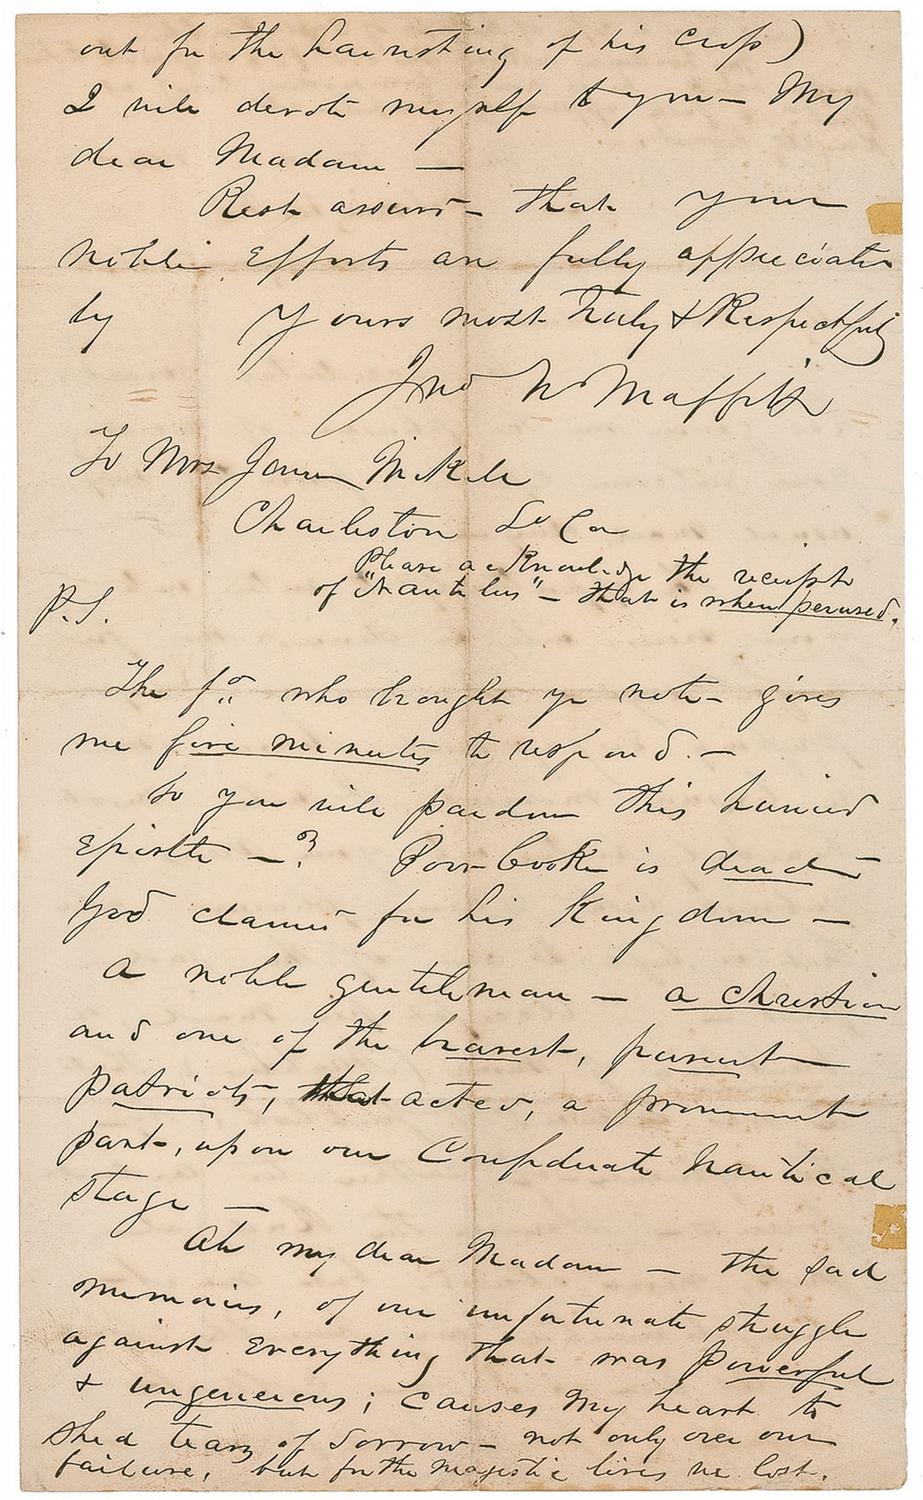 out for the harvesting of his crops)
I will devote myself to you — My
dear Madam —
Rest assured — that your
noble efforts are fully appreciated
by Yours most truly & Respectfully
Jno N Maffitt
To Mrs James
Charleston So Ca
Please acknowledge the receipt
of "Nautilus" — that is when perused.
P.S.
The who brought yr note — gives
me five minutes to respond. —
So you will pardon this hurried
Epistle —? Poor Cooke is dead —
God claimed for his Kingdom —
a noble gentleman — a Christian
and one of the bravest, purest
patriots, that acted, a prominent
part, upon our Confederate Nautical
stage —
Ah my dear Madam — the sad
memories, of our unfortunate struggle
against everything that was powerful
& ungenerous; causes my heart to
shed tears of sorrow — not only over our
failure, but for the majestic lives we lost.